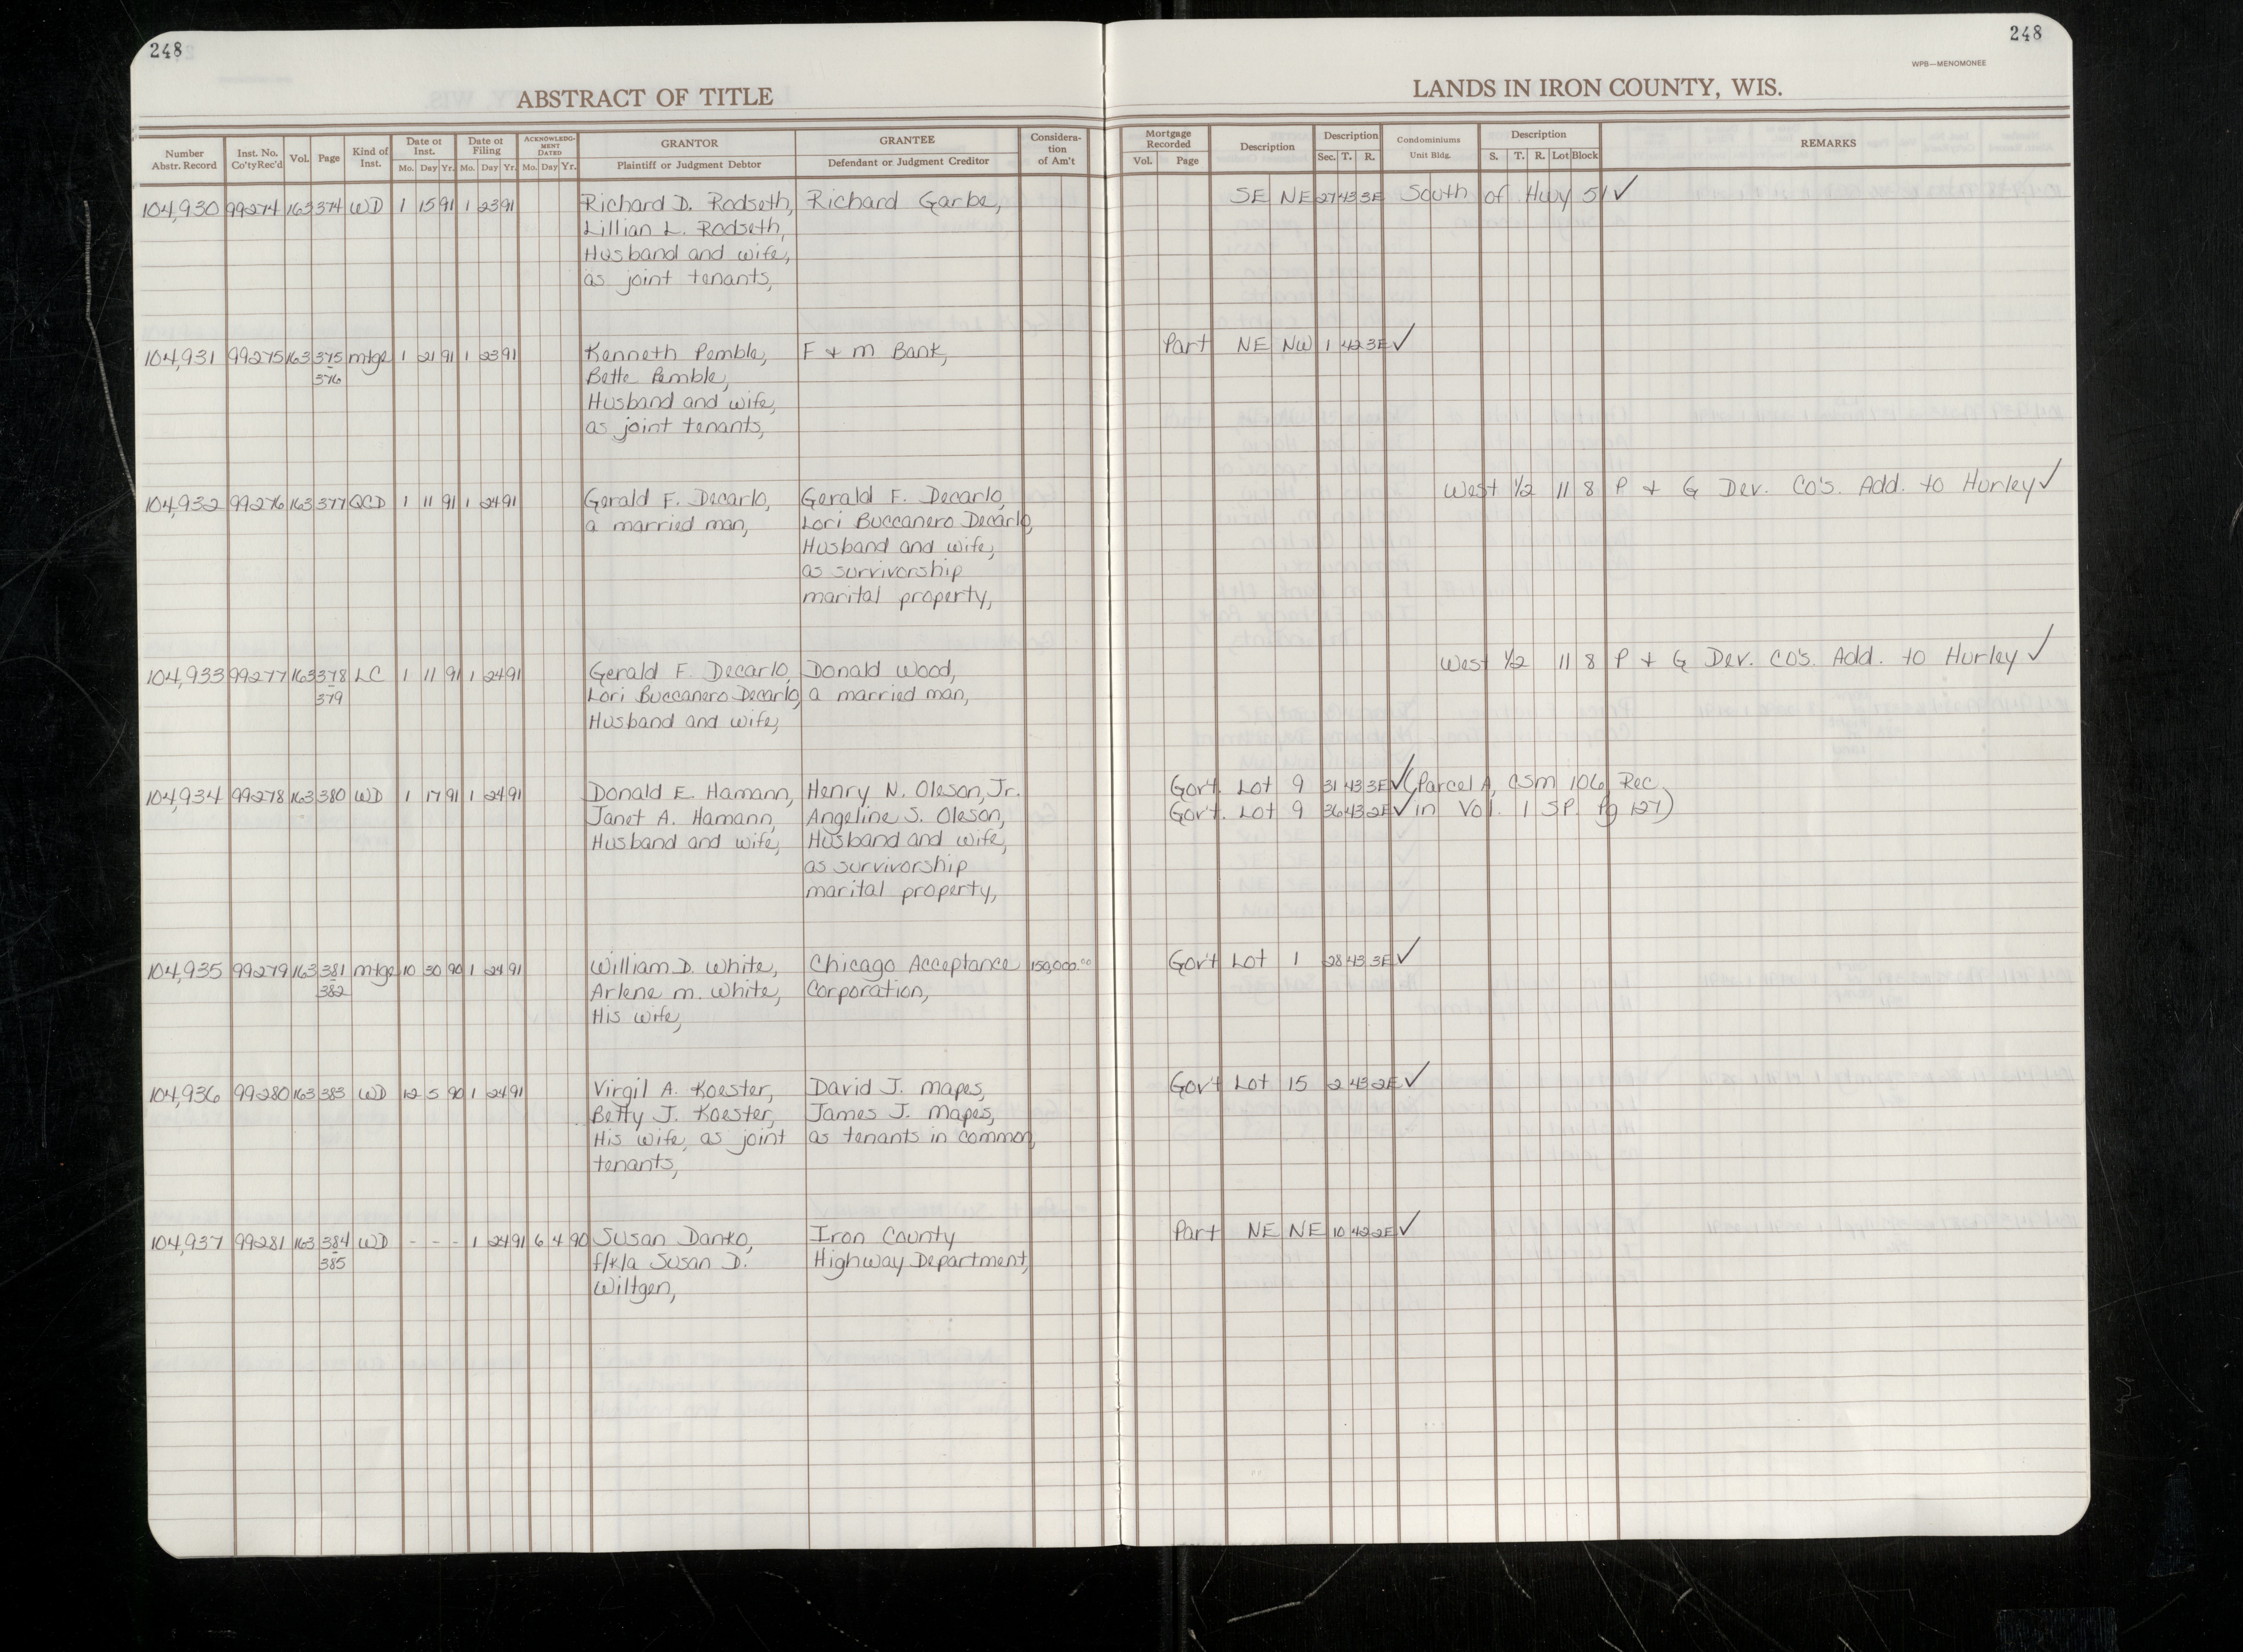 248
248
WPB—MENOMONEE
ABSTRACT OF TITLE
LANDS IN IRON COUNTY, WIS.
Number Abstr. Record | Inst. No. Co'ty Rec'd | Vol. | Page | Kind of Inst. | Date of Inst. Mo. Day Yr. | Date of Filing Mo. Day Yr. | ACKNOWLEDGMENT DATED Mo. Day Yr. | GRANTOR Plaintiff or Judgment Debtor | GRANTEE Defendant or Judgment Creditor | Consideration of Am't | Mortgage Recorded Vol. Page | Description | Description Sec. T. R. | Condominiums Unit Bldg. | Description S. T. R. Lot Block | REMARKS
104,930 99274 163 374 WD 1 15 91 1 23 91 Richard D. Rodseth, Richard Garbe, SE NE 27 43 3E South of Hwy 51 ✓
Lillian L. Rodseth,
Husband and wife,
as joint tenants,
104,931 99275 163 375 mtge 1 21 91 1 23 91 Kenneth Pemble, F + m Bank, Part NE NW 1 42 3E ✓
- 376 Bette Pemble,
Husband and wife,
as joint tenants,
104,932 99276 163 377 QCD 1 11 91 1 24 91 Gerald F. Decarlo, Gerald F. Decarlo, West 1/2 11 8 P + G Dev. Co's. Add. to Hurley ✓
a married man, Lori Buccanero Decarlo,
Husband and wife,
as survivorship
marital property,
104,933 99277 163 378 LC 1 11 91 1 24 91 Gerald F. Decarlo, Donald Wood, West 1/2 11 8 P + G Dev. Co's. Add. to Hurley ✓
- 379 Lori Buccanero Decarlo, a married man,
Husband and wife,
104,934 99278 163 380 WD 1 17 91 1 24 91 Donald E. Hamann, Henry N. Oleson, Jr. Gov't. Lot 9 31 43 3E ✓ (Parcel A, CSM 106 Rec
Janet A. Hamann, Angeline S. Oleson, Gov't. Lot 9 36 43 2E ✓ in Vol. 1 SP. Pg 127)
Husband and wife, Husband and wife,
as survivorship
marital property,
104,935 99279 163 381 mtge 10 30 90 1 24 91 William D. White, Chicago Acceptance 150,000.00 Gov't Lot 1 28 43 3E ✓
382 Arlene m. White, Corporation,
His wife,
104,936 99280 163 383 WD 12 5 90 1 24 91 Virgil A. Koester, David J. mapes, Gov't Lot 15 2 43 2E ✓
Betty J. Koester, James J. Mapes,
His wife, as joint as tenants in common,
tenants,
104,937 99281 163 384 WD - - - 1 24 91 6 4 90 Susan Danko, Iron County Part NE NE 10 42 2E ✓
- 385 f/k/a Susan D. Highway Department,
Wiltgen,